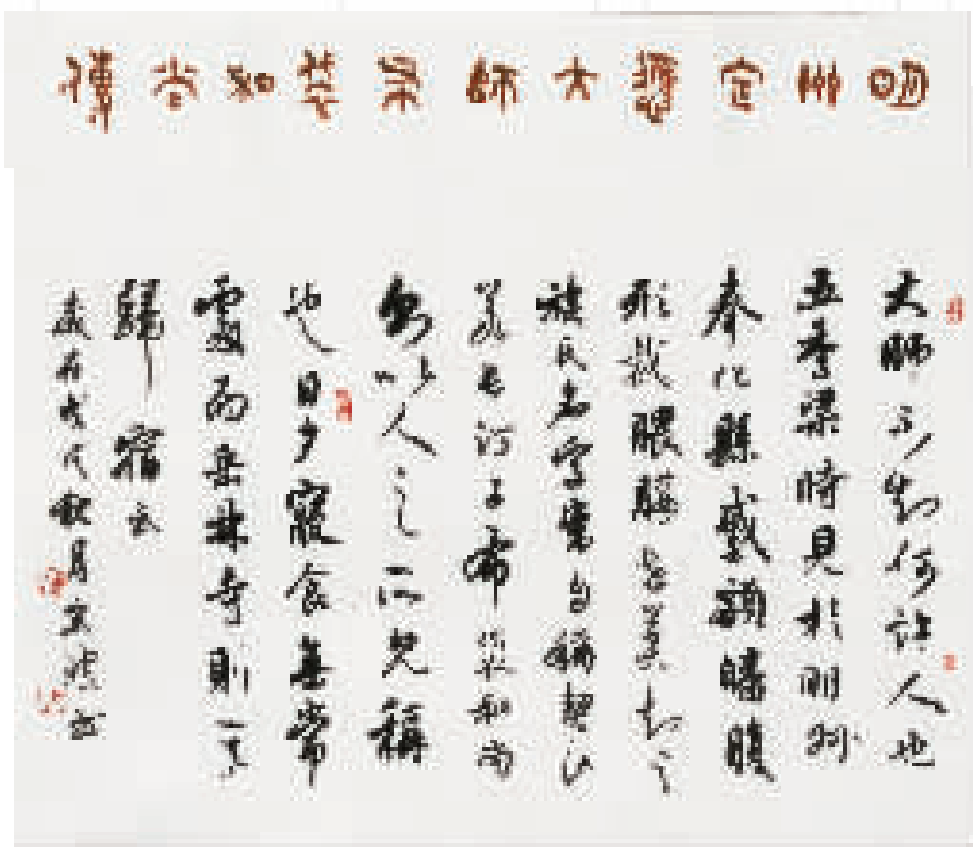 明州定應大師布袋和尚傳
大師不知何許人也
五季梁時見於明州
奉化縣蹙額皤腹
形裁腲脮皆莫知其
族氏名字唯自稱契此
長汀子布袋和尚
以人之所見稱
也日夕寢食無常
處而岳林寺則其
歸宿云
歲在戊戌秋月